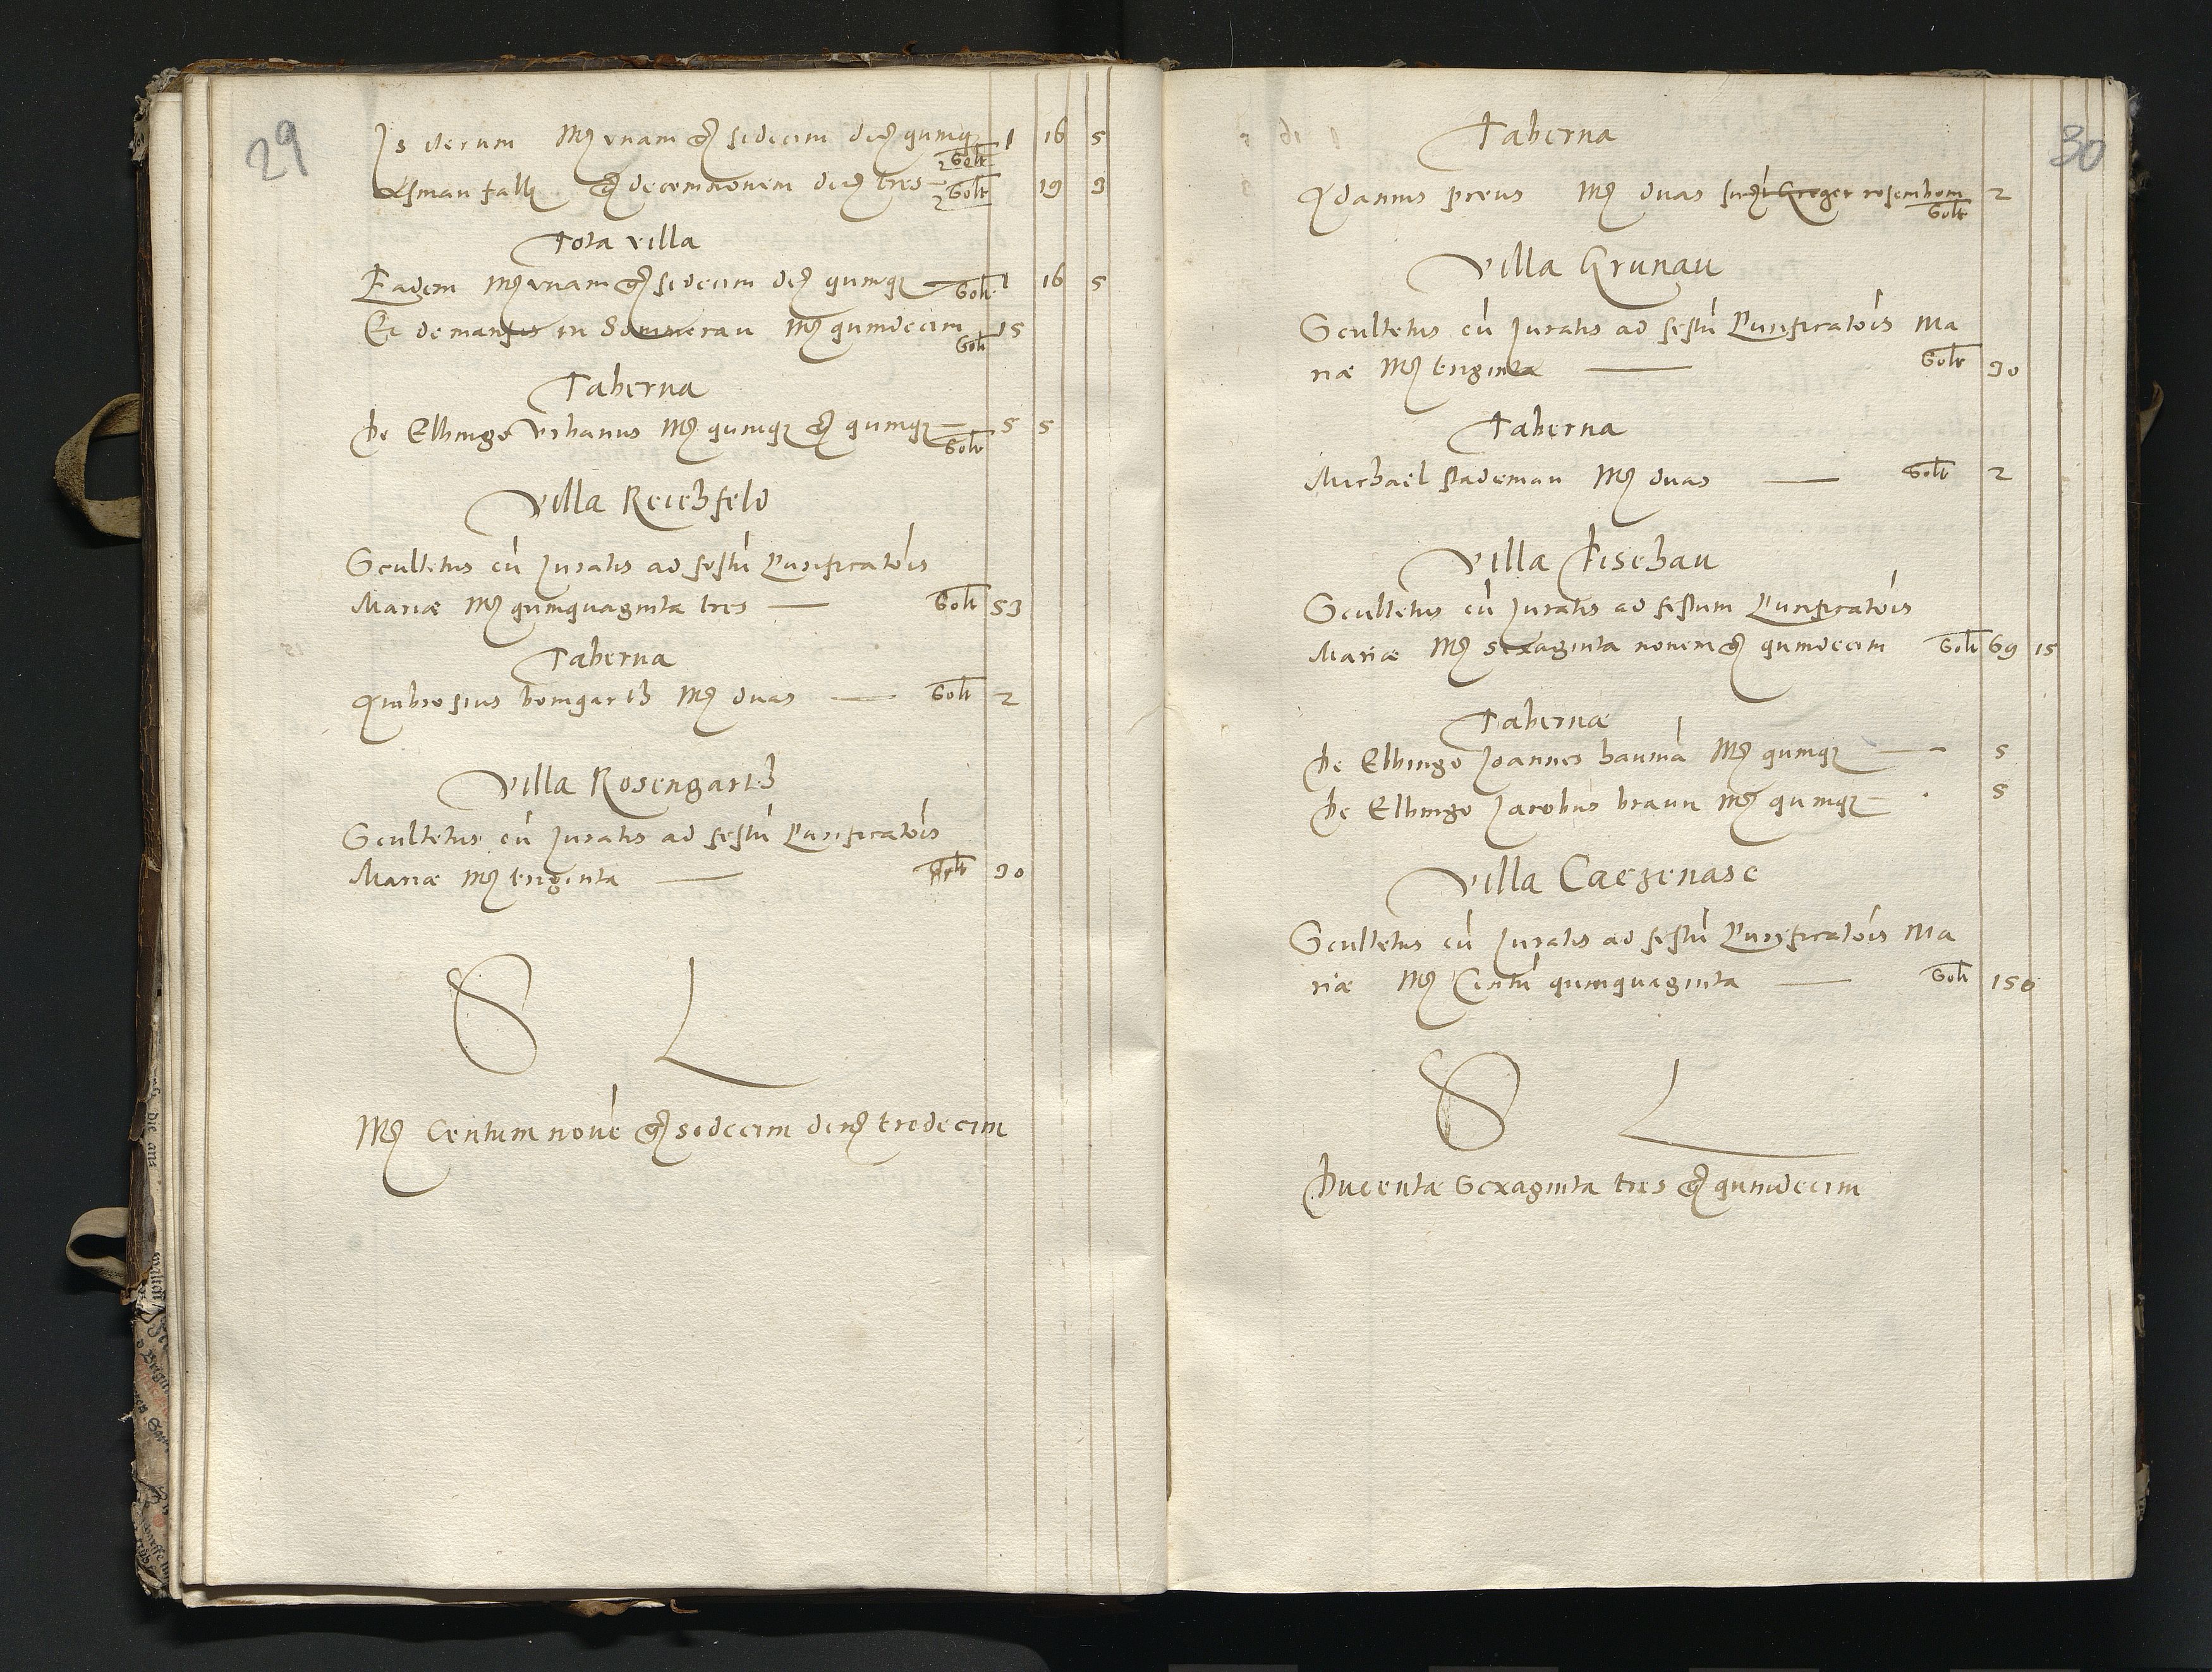 29
Is iterum Mc unam gr sedecim den quinq Solt 1 16 5
Asman falk gr decemnovem den tres Solt 19 3
Tota villa
Eadem Mc unam gr sedecim den quinq Solt 1 16 5
Et de mansis in Sommerau Mc quindecim Solt 15
Taberna
De Elbingo Urbanus Mc quinq gr quinq Solt 5 5
Villa Reichfeld
Scultetus cū Juratis ad festū Purificatōis
Mariæ Mc quinquaginta tres — Solt 53
Taberna
Ambrosius bomgarth Mc duas — Solt 2
Villa Rosengarth
Scultetus cū Juratis ad festū Purificatōis
Mariæ Mc triginta — Solt 30
S L
Mc Centum novē gr sedecim den tredecim
30
Taberna
Adamus preus Mc duas Greger rosembom Solt 2
Villa Grunau
Scultetus cū Juratis ad festū Purificatōis Ma
riæ Mc triginta — Solt 30
Taberna
Michael stademan Mc duas — Solt 2
Villa Fischau
Scultetus cū Juratis ad festum Purificatōis
Mariæ Mc sexaginta novem gr quindecim Solt 69 15
Tabernæ
De Elbingo Joannes baumā Mc quinq — 5
De Elbingo Jacobus braun Mc quinq — 5
Villa Caczenase
Scultetus cū Juratis ad festū Purificatōis Ma
riæ Mc Centū quinquaginta — Solt 150
S L
Ducentæ Sexaginta tres gr quindecim